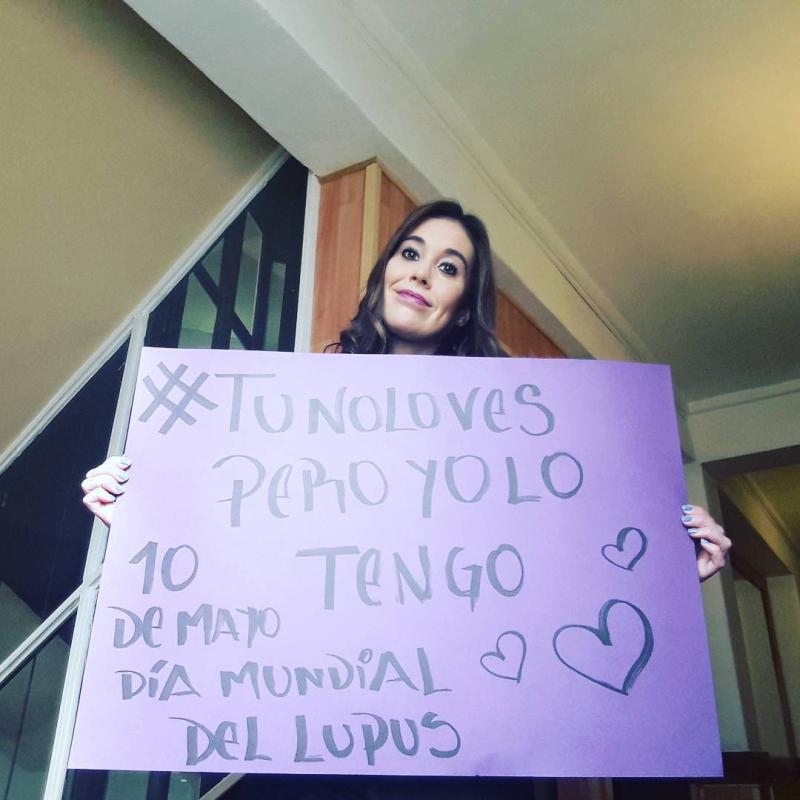 #TUNOLOVES
PEROYOLO
TENGO
10
DE MAYO
DÍA MUNDIAL
DEL LUPUS